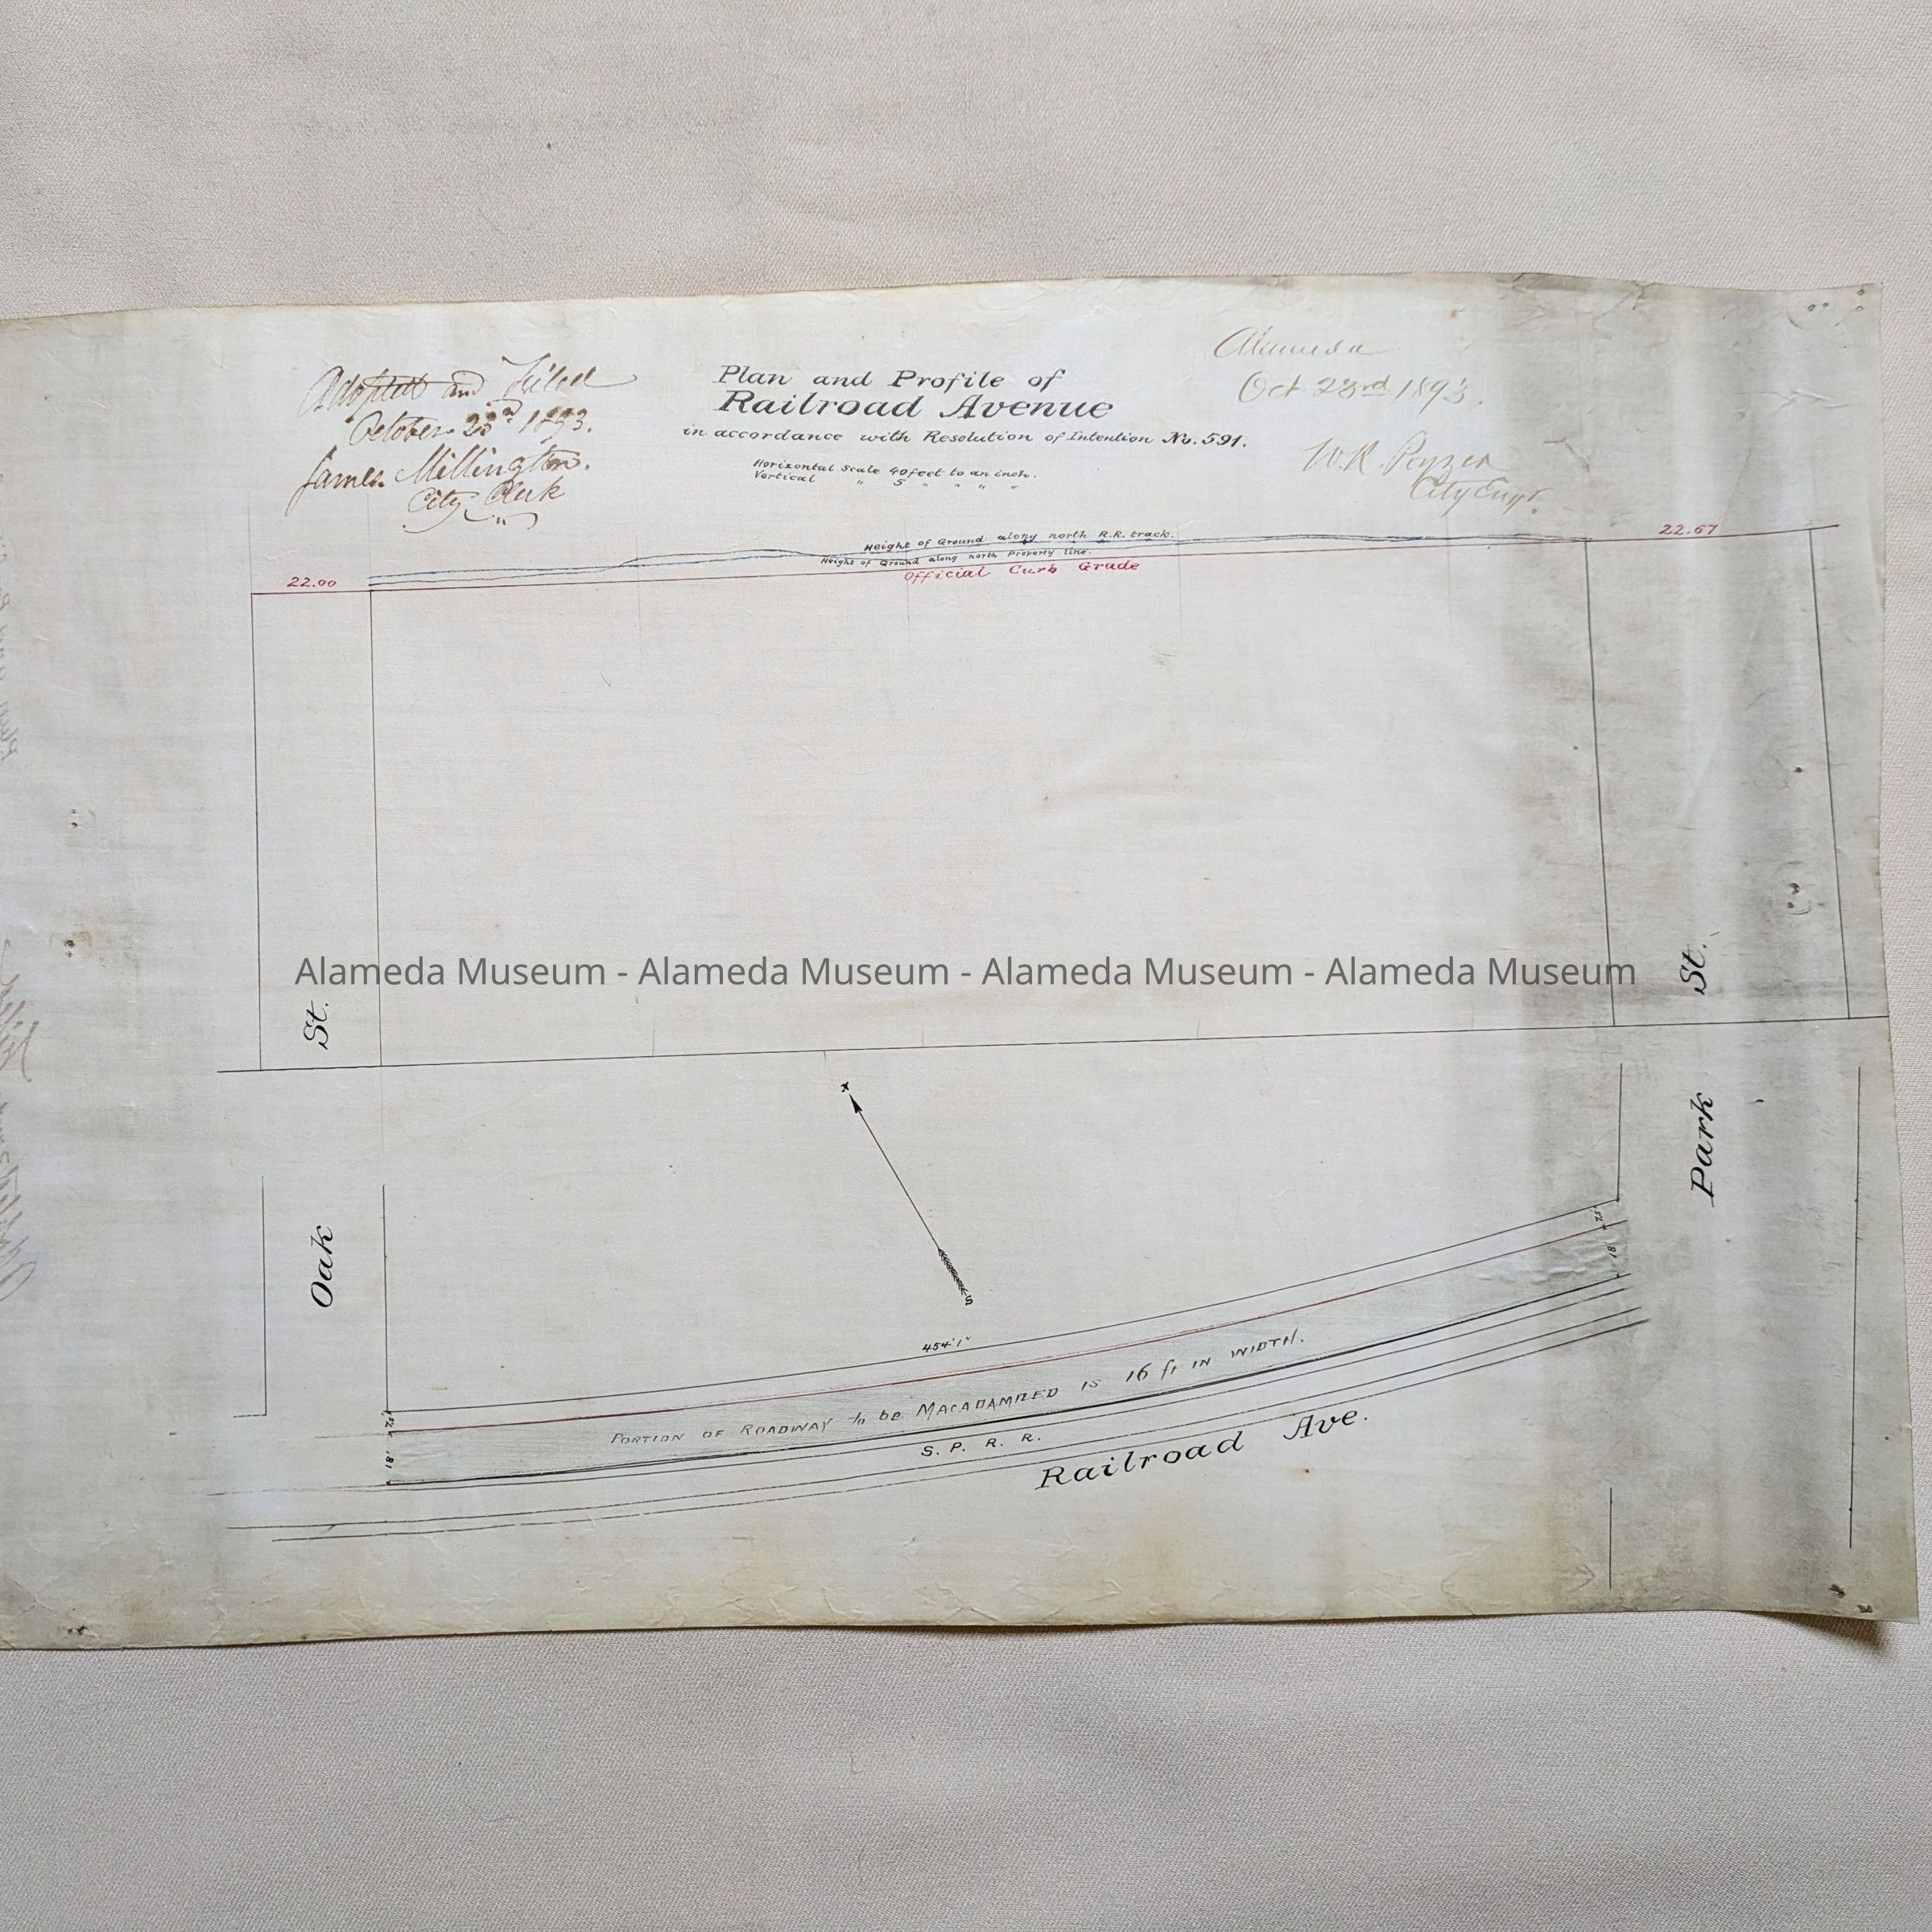 Adopted and Filed
October 23rd 1893.
James Millington.
City Clerk
Plan and Profile of
Railroad Avenue
in accordance with Resolution of Intention No. 591.
Horizontal Scale 40 feet to an inch.
Vertical " 5 " " " "
Alameda
Oct 23rd 1893.
W.R. Poyzer
City Engr.
Height of Ground along north R.R. track.
Height of Ground along north Property line.
Official Curb Grade
22.00
22.67
Alameda Museum - Alameda Museum - Alameda Museum - Alameda Museum
Oak St.
Park St.
S
454'1"
18
18
PORTION OF ROADWAY to be MACADAMIZED IS 16 ft IN WIDTH.
S. P. R. R.
Railroad Ave.